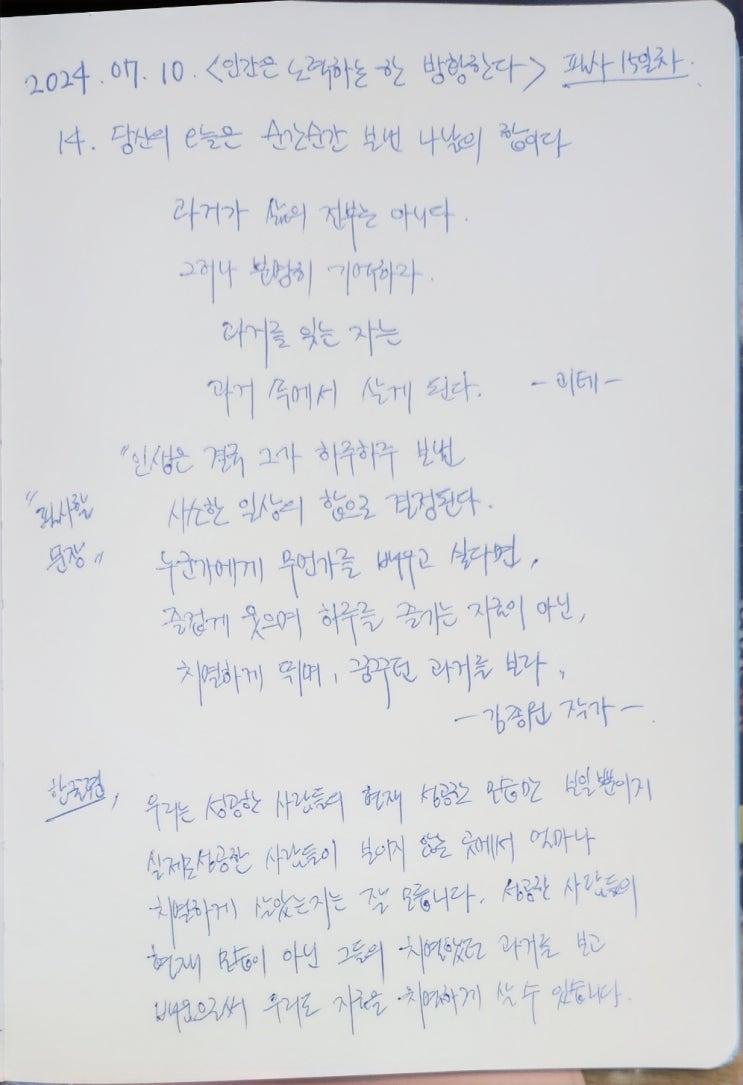 2024. 07. 10. <인간은 노력하는 한 방황한다> 필사 15일차.
14. 당신의 오늘은 순간순간 보낸 나날의 합이다
과거가 삶의 전부는 아니다.
그러나 분명히 기억하라.
과거를 잊는 자는
과거 속에서 살게 된다. -괴테-
"인생은 결국 그가 하루하루 보낸
"필사할 사소한 일상의 합으로 결정된다.
문장" 누군가에게 무언가를 배우고 싶다면,
즐겁게 웃으며 하루를 즐기는 지금이 아닌,
치열하게 뛰며, 꿈꾸던 과거를 보라,
-김종원 작가-
한줄평, 우리는 성공한 사람들의 현재 성공한 모습만 보일뿐이지
실제로 성공한 사람들이 보이지 않는 곳에서 얼마나
치열하게 살았는지는 잘 모릅니다. 성공한 사람들의
현재 모습이 아닌 그들의 치열했던 과거를 보고
배움으로써 우리도 지금을 치열하게 살 수 있습니다.